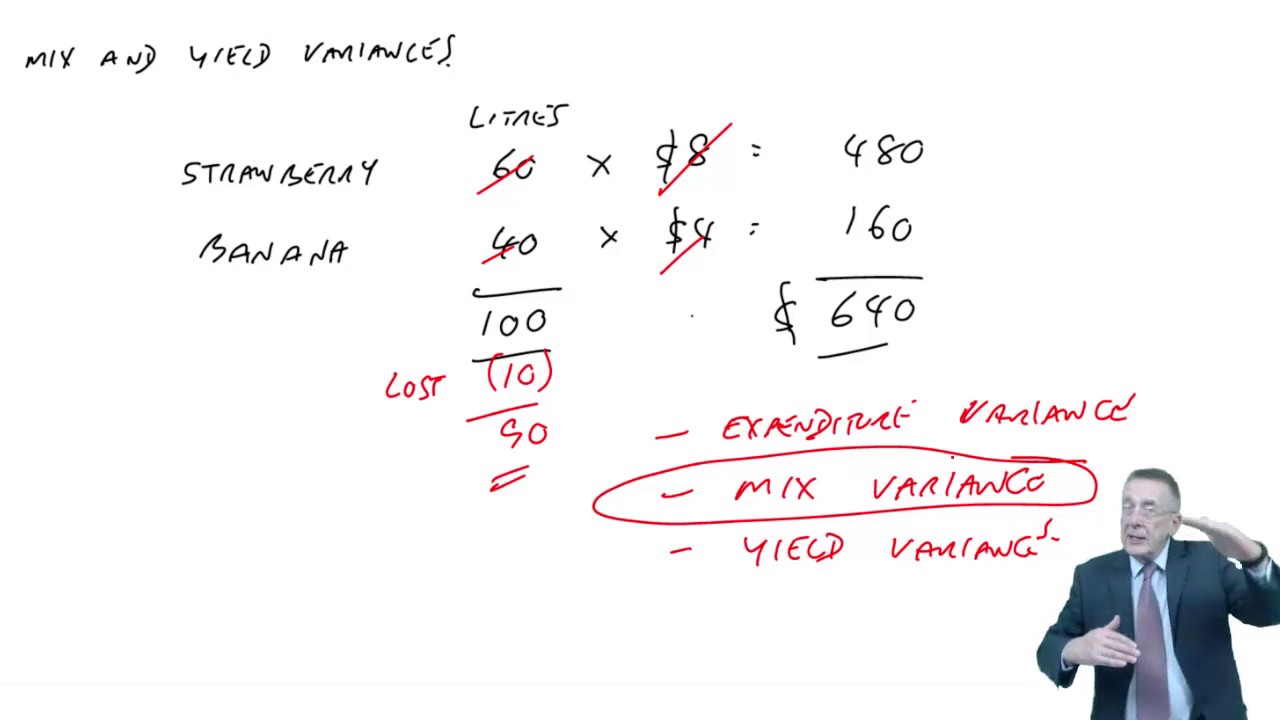 MIX AND YIELD VARIANCES
LITRES
STRAWBERRY 60 X $8 = 480
BANANA 40 X $4 = 160
100 $ 640
LOST (10)
90
- EXPENDITURE VARIANCE
- MIX VARIANCE
- YIELD VARIANCE